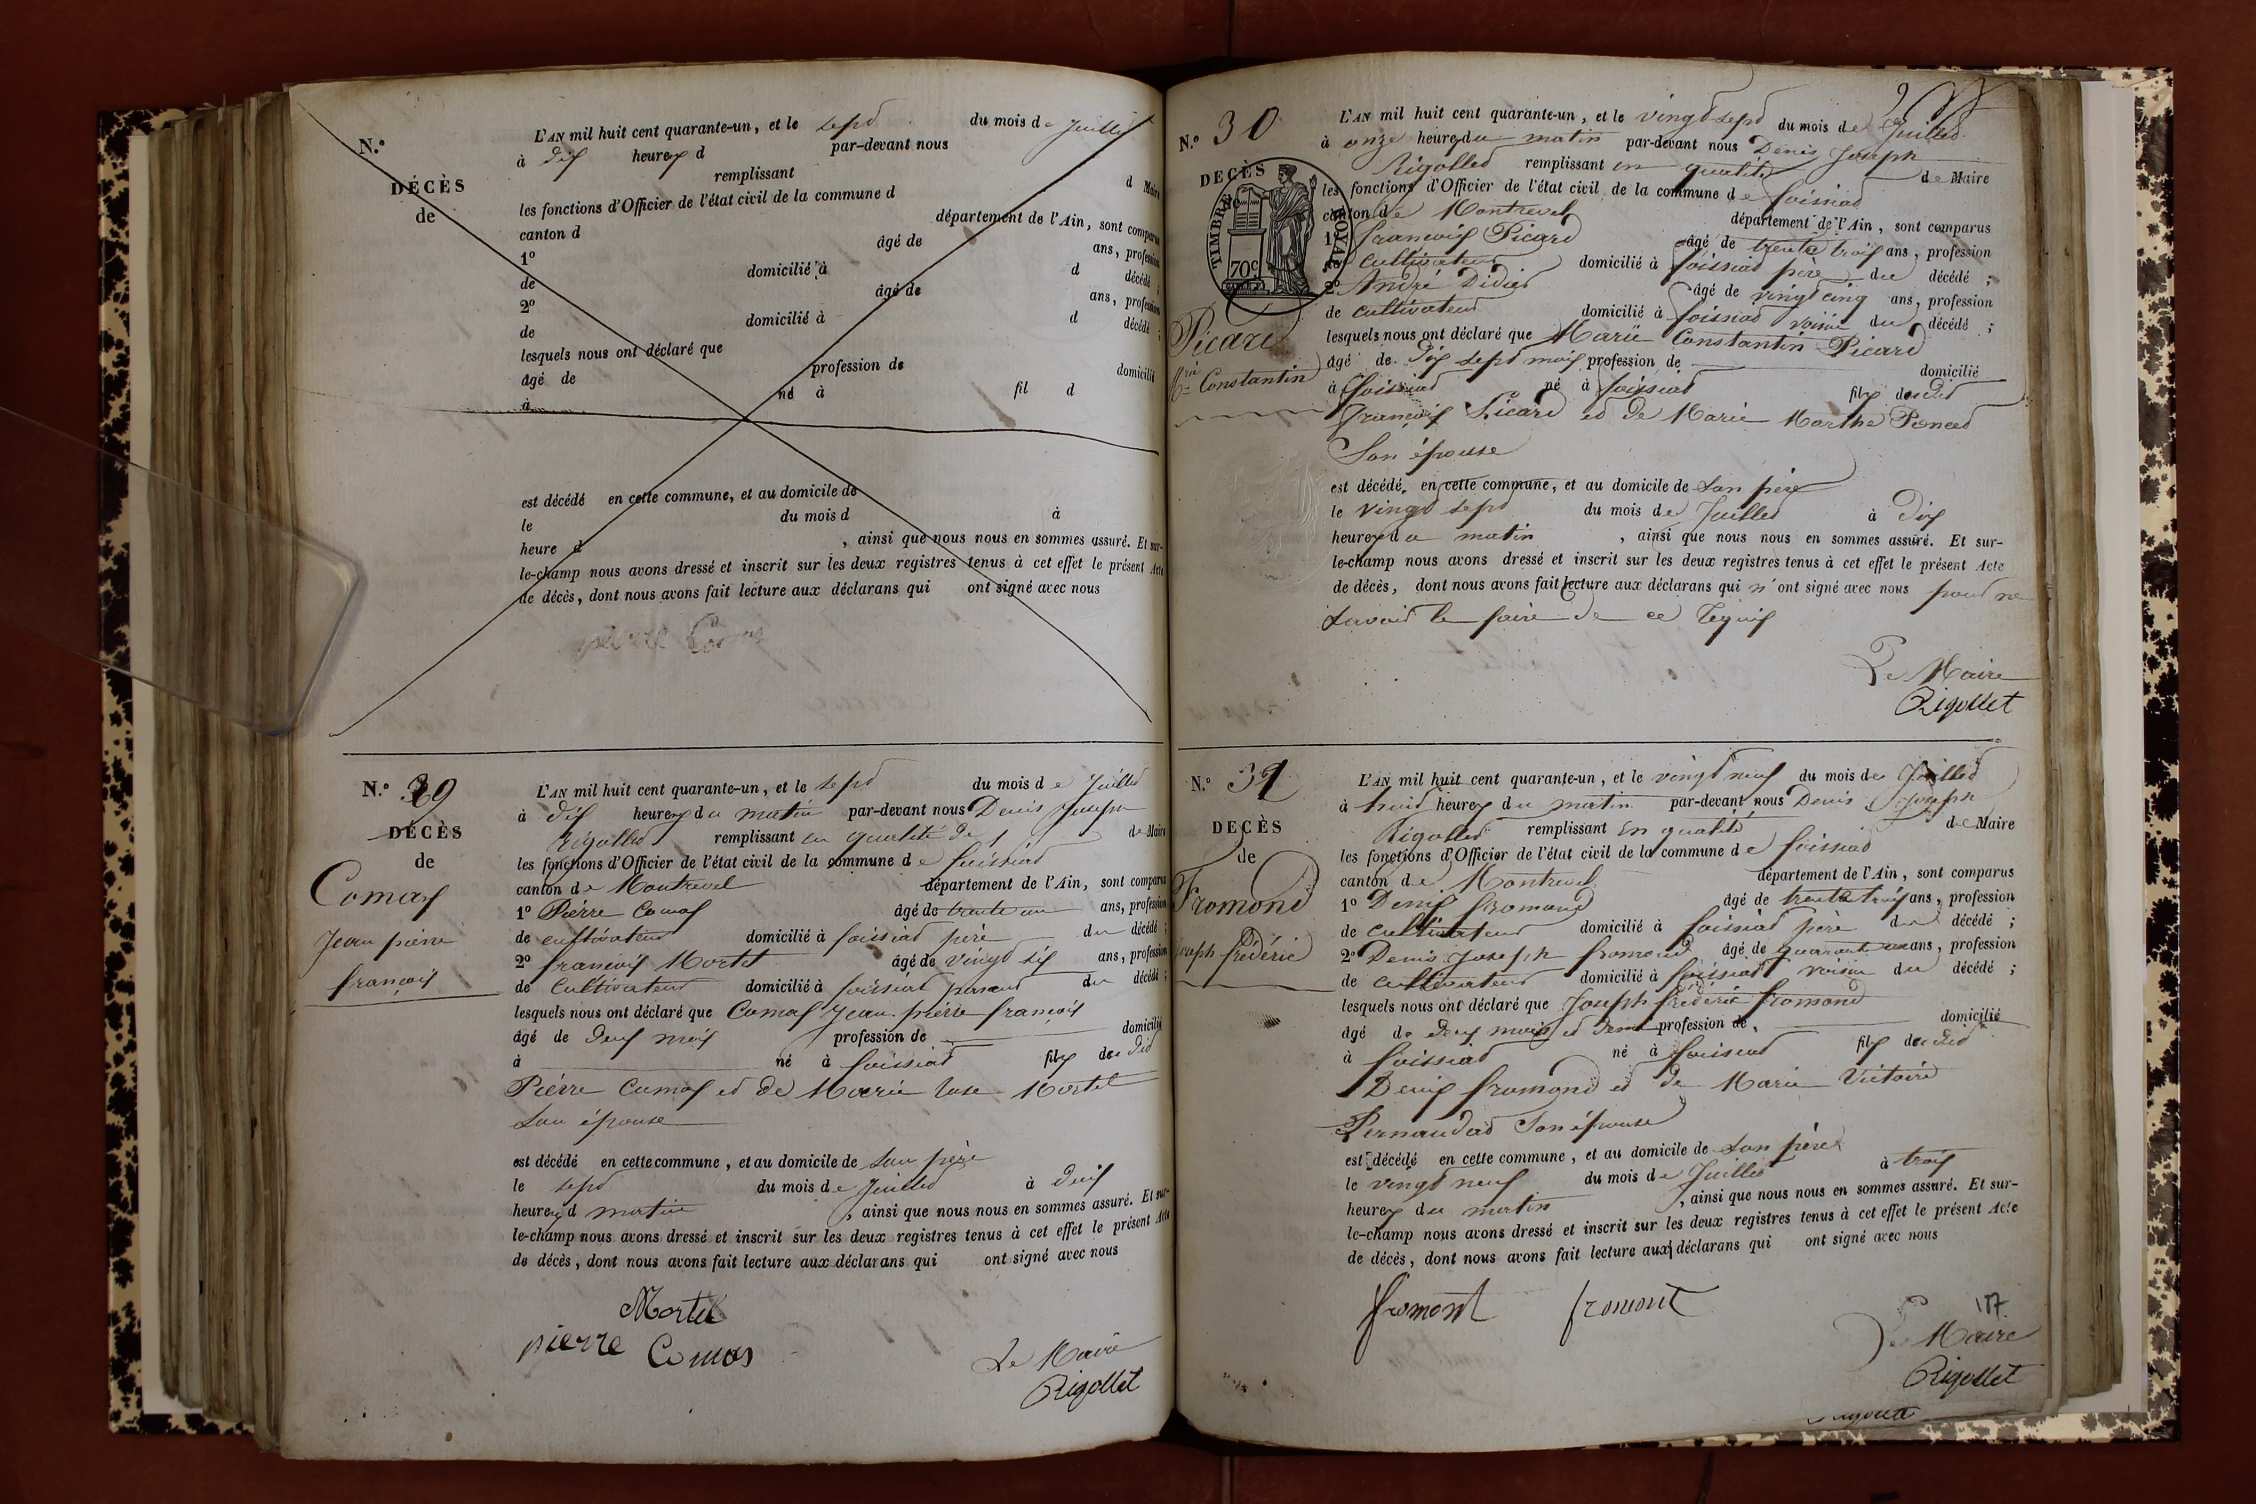 N.º
DÉCÈS
de
L'AN mil huit cent quarante-un, et le sept du mois de Juillet
à dix heures d par-devant nous
remplissant d Maire
les fonctions d'Officier de l'état civil de la commune d
canton d département de l'Ain, sont comparus
1º âgé de ans, profession
de domicilié à d décédé ;
2º âgé de ans, profession
de domicilié à d décédé ;
lesquels nous ont déclaré que
âgé de profession de domicilié
à né à fil d
est décédé en cette commune, et au domicile de
le du mois d à
heure d , ainsi que nous nous en sommes assuré. Et sur-
le-champ nous avons dressé et inscrit sur les deux registres tenus à cet effet le présent Acte
de décès, dont nous avons fait lecture aux déclarans qui ont signé avec nous
N.º 29
DÉCÈS
de
Comas
Jean pierre
françois
L'AN mil huit cent quarante-un, et le sept du mois de Juillet
à dix heures du matin par-devant nous Denis Joseph
Rigollet remplissant en qualité de de Maire
les fonctions d'Officier de l'état civil de la commune de foissiat
canton de Montrevel département de l'Ain, sont comparus
1º Pierre Comas âgé de trente un ans, profession
de cultivateur domicilié à foissiat père du décédé ;
2º françois Mortel âgé de vingt six ans, profession
de cultivateur domicilié à foissiat parent du décédé ;
lesquels nous ont déclaré que Comas Jean pierre françois
âgé de deux mois profession de domicilié
à né à foissiat fils de dit
Pierre Comas et de Marie rose Mortel
son épouse
est décédé en cette commune, et au domicile de son père
le sept du mois de Juillet à deux
heures d matin , ainsi que nous nous en sommes assuré. Et sur-
le-champ nous avons dressé et inscrit sur les deux registres tenus à cet effet le présent Acte
de décès, dont nous avons fait lecture aux déclarans qui ont signé avec nous
Mortel
pierre Comas
Le Maire
Rigollet
N.º 30
DÉCÈS
TIMBRE ROYAL
70c
Picard
Constantin
L'AN mil huit cent quarante-un, et le vingt sept du mois de Juillet
à onze heures du matin par-devant nous Denis Joseph
Rigollet remplissant en qualité de Maire
les fonctions d'Officier de l'état civil de la commune de foissiat
canton de Montrevel département de l'Ain, sont comparus
1º françois Picard âgé de trente trois ans, profession
de cultivateur domicilié à foissiat père du décédé ;
2º André Didier âgé de vingt cinq ans, profession
de cultivateur domicilié à foissiat voisin du décédé ;
lesquels nous ont déclaré que Marie Constantin Picard
âgé de dix sept mois profession de domicilié
à foissiat né à foissiat fils de dit
françois Picard et de Marie Marthe Poncet
Son épouse
est décédé, en cette commune, et au domicile de son père
le vingt sept du mois de Juillet à dix
heures du matin , ainsi que nous nous en sommes assuré. Et sur-
le-champ nous avons dressé et inscrit sur les deux registres tenus à cet effet le présent Acte
de décès, dont nous avons fait lecture aux déclarans qui n'ont signé avec nous pour ne
savoir le faire de ce requis
Le Maire
Rigollet
N.º 31
DÉCÈS
de
Fromond
joseph frédéric
L'AN mil huit cent quarante-un, et le vingt neuf du mois de Juillet
à huit heures du matin par-devant nous Denis Joseph
Rigollet remplissant en qualité de Maire
les fonctions d'Officier de l'état civil de la commune de foissiat
canton de Montrevel département de l'Ain, sont comparus
1º Denis fromond âgé de trente trois ans, profession
de cultivateur domicilié à foissiat père du décédé ;
2º Denis Joseph fromond âgé de quarante ans, profession
de cultivateur domicilié à foissiat voisin du décédé ;
lesquels nous ont déclaré que Joseph frédéric fromond
âgé de deux mois et demi profession de domicilié
à foissiat né à foissiat fils de dit
Denis fromond et de Marie Victoire
Pernaudat Son épouse
est décédé en cette commune, et au domicile de son père
le vingt neuf du mois de Juillet à trois
heures du matin , ainsi que nous nous en sommes assuré. Et sur-
le-champ nous avons dressé et inscrit sur les deux registres tenus à cet effet le présent Acte
de décès, dont nous avons fait lecture aux déclarans qui ont signé avec nous
fromont fromont
187
Le Maire
Rigollet